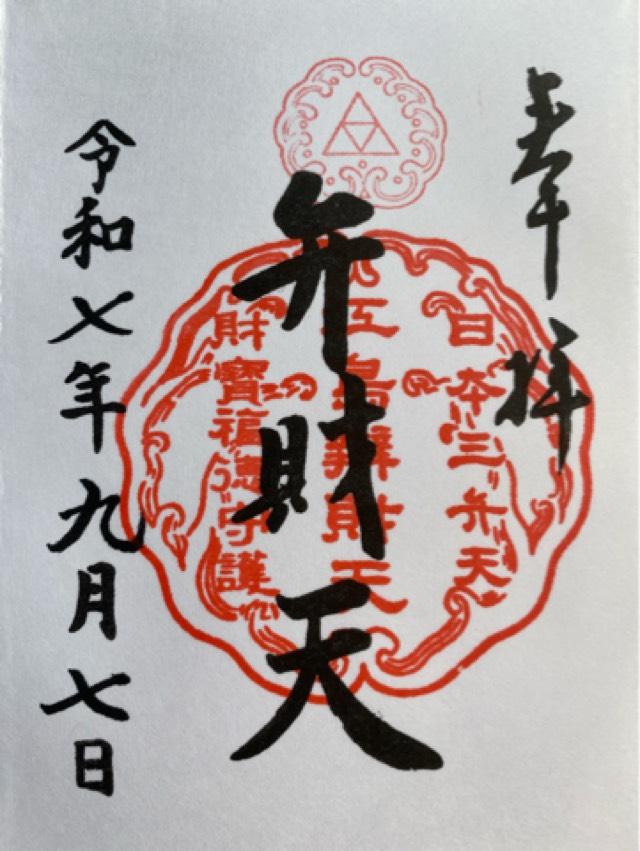 奉拝
弁財天
令和七年九月七日
日本三弁天
江島辨財天
財寶福徳守護